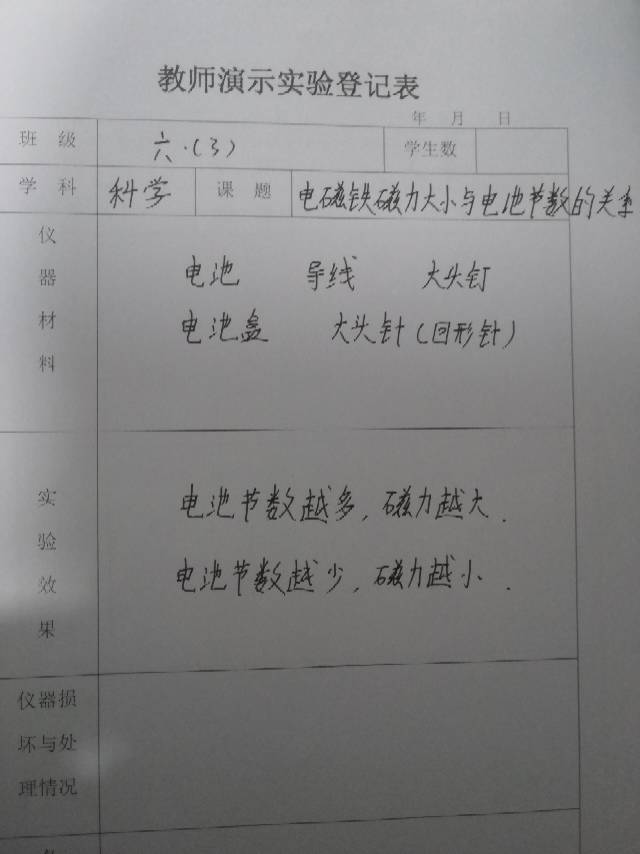 教师演示实验登记表
年 月 日
班 级 六.(3) 学生数
学 科 科学 课 题 电磁铁磁力大小与电池节数的关系
仪器材料
电池 导线 大头钉
电池盒 大头针(回形针)
实验效果
电池节数越多,磁力越大.
电池节数越少,磁力越小.
仪器损
坏与处
理情况